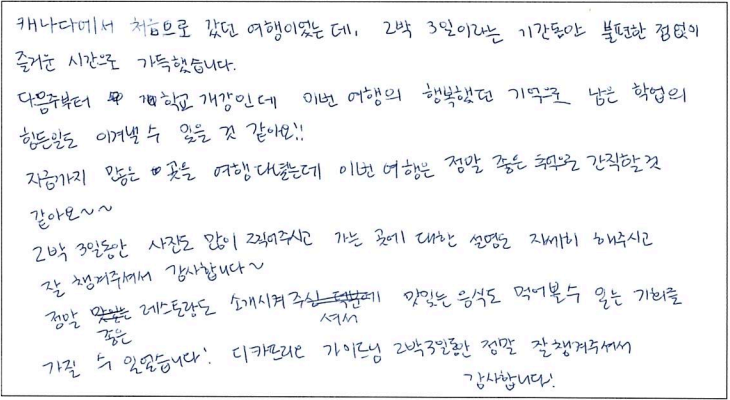 캐나다에서 처음으로 갔던 여행이었는데, 2박 3일이라는 기간동안 불편한 점 없이
즐거운 시간으로 가득했습니다.
다음주부터 학교 개강인데 이번 여행의 행복했던 기억으로 남은 학업의
힘든일도 이겨낼 수 있을 것 같아요!!
지금까지 많은 곳을 여행 다녔는데 이번 여행은 정말 좋은 추억으로 간직할 것
같아요~~
2박 3일동안 사진도 많이 찍어주시고 가는 곳에 대한 설명도 자세히 해주시고
잘 챙겨주셔서 감사합니다~
정말 좋은 레스토랑도 소개시켜 주셔서 맛있는 음식도 먹어볼 수 있는 기회를
가질 수 있었습니다! 디카프리오 가이드님 2박3일동안 정말 잘 챙겨주셔서
감사합니다!